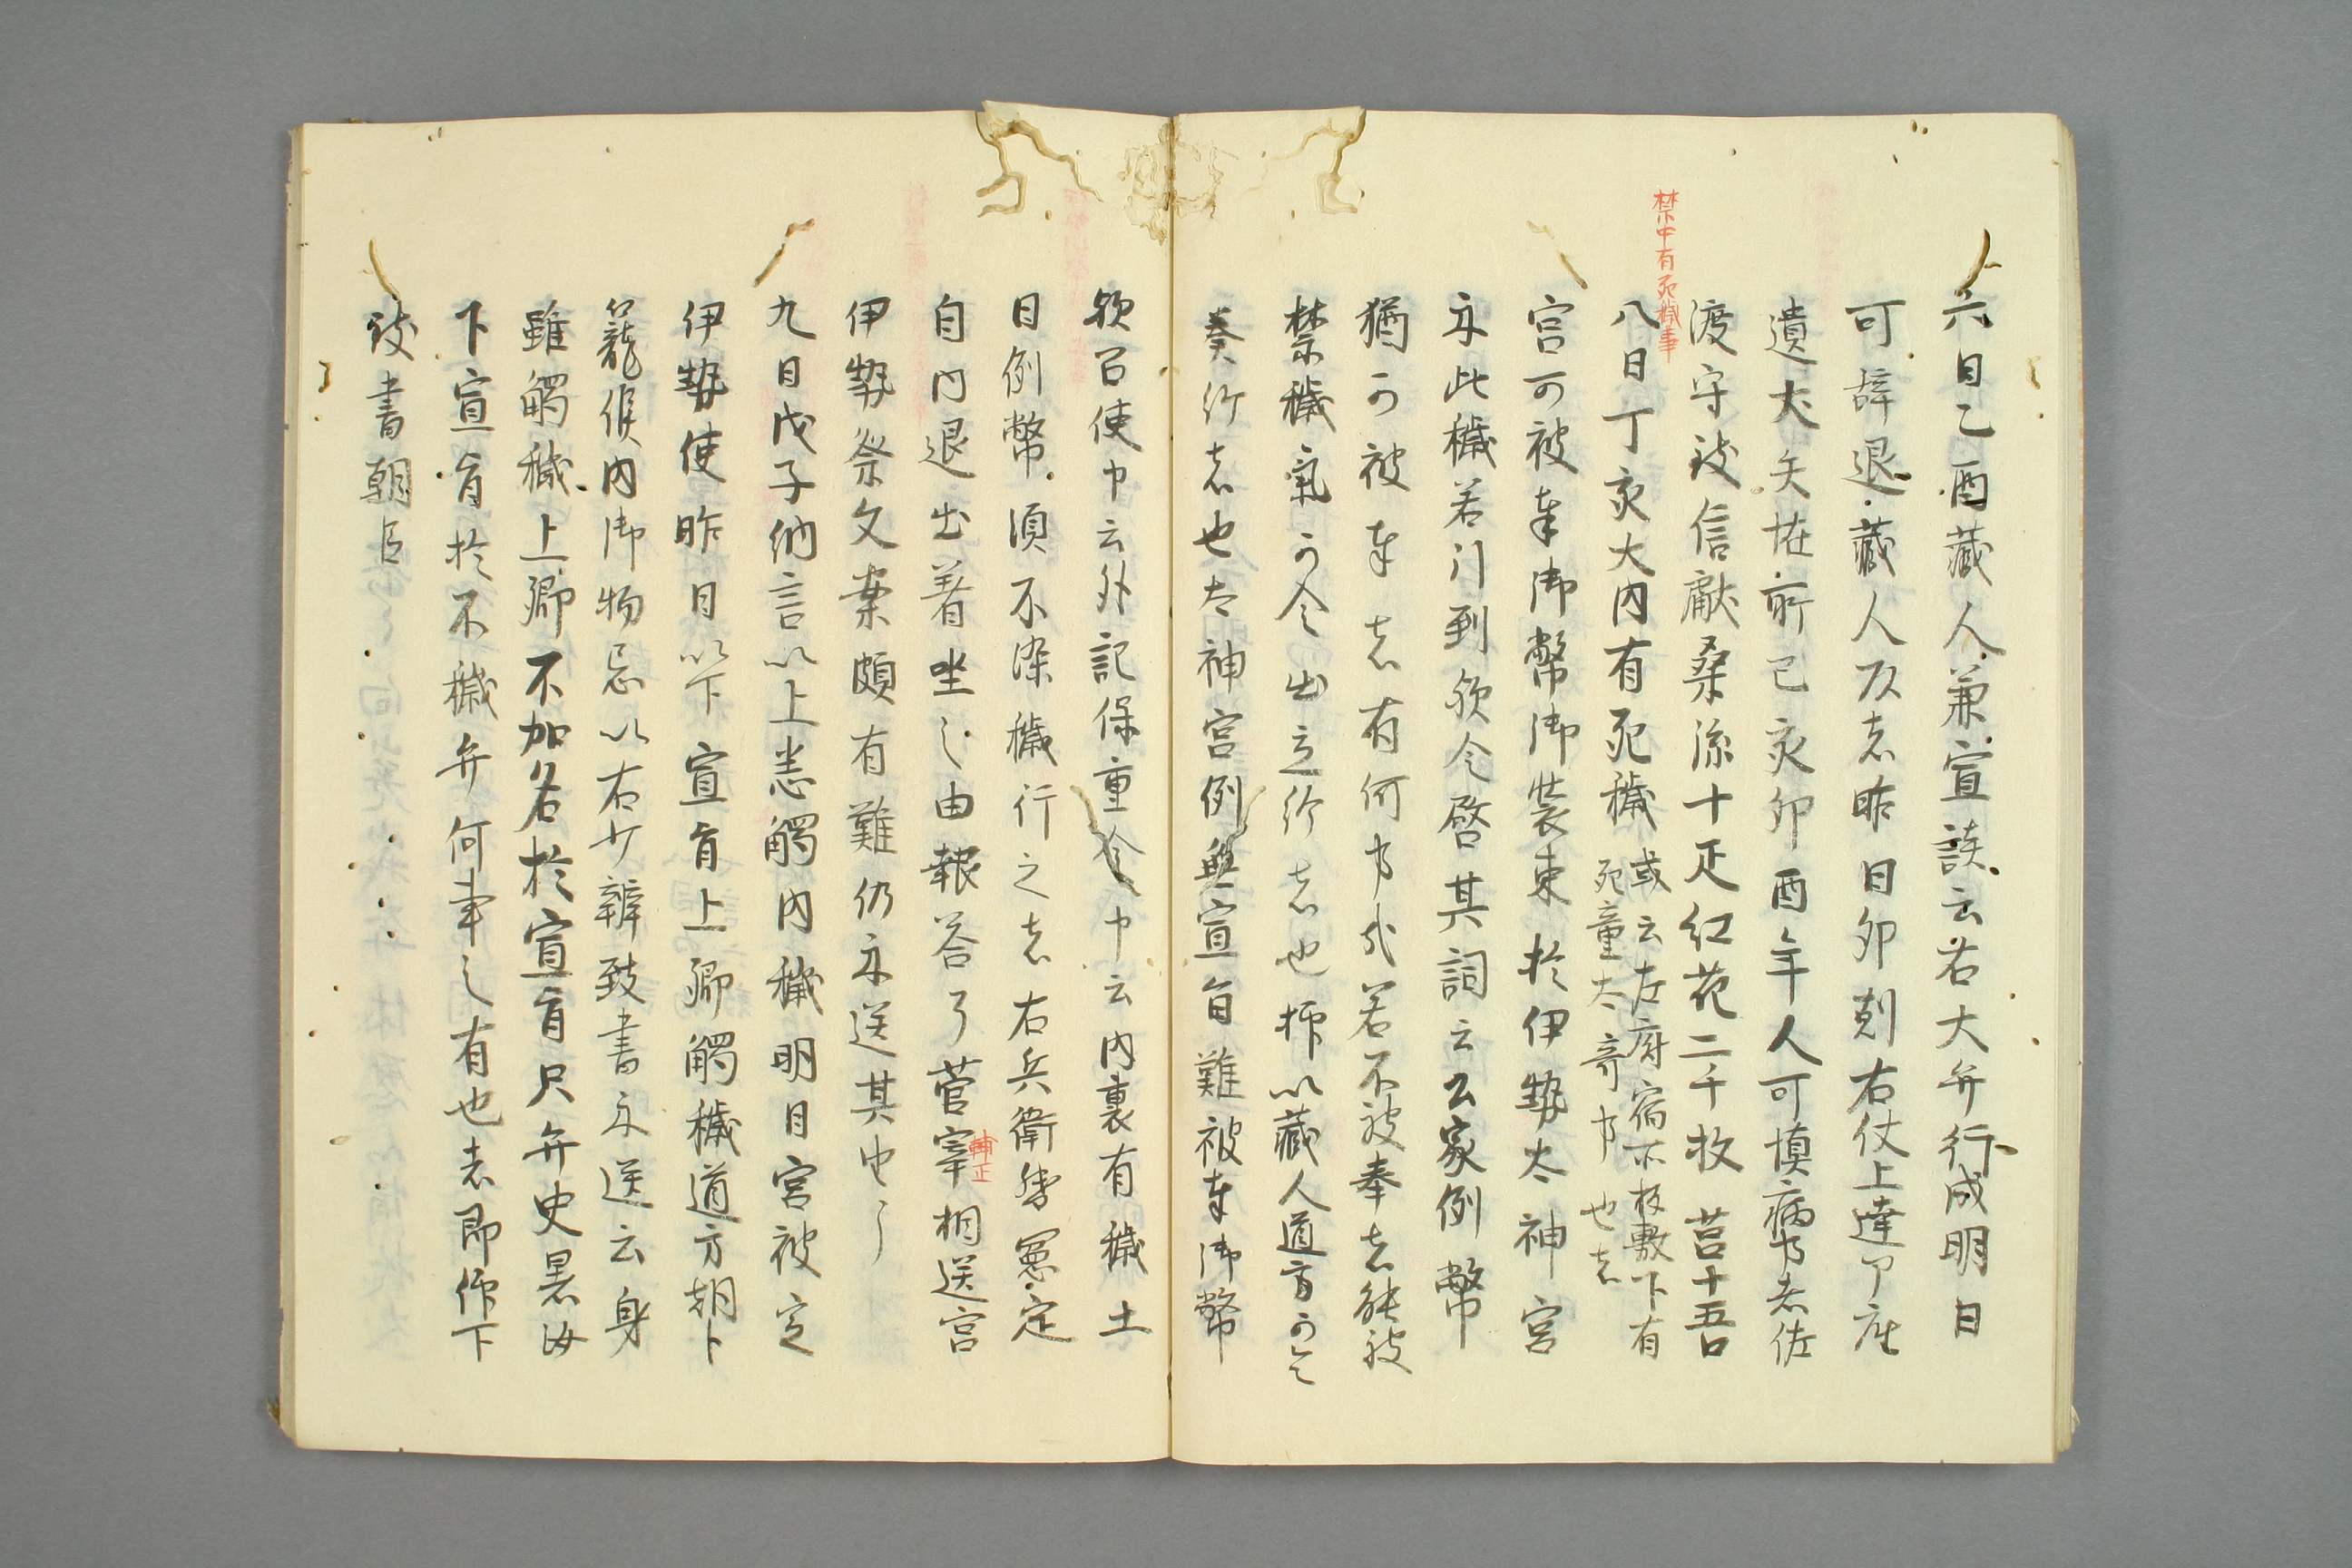 禁中有死穢事
六日乙酉藏人兼宣談云若大弁行成明日
可辞退藏人及者昨日卯剋右仗上達部座
遺犬矢恠前已亥卯酉年人可慎病事者佐
渡守致信獻桑絲十疋紅花二千枚莒十五口
八日丁亥大内有死穢
或云左府宿所板敷下有
死童太奇事也者
宮可被奉御幣御裝束於伊勢太神宮
示此穢若引到欤令啓其詞云公家例幣
猶可被奉者有何事哉若不被奉者能被
禁穢氣可令出立給者也抑以藏人道方可令
奏行者也太神宮例無宣旨難被奉御幣
欤召使申云外記保重令申云内裏有穢土
日例幣須不染穢行之者右兵衛督冕定
自内退出着坐之由報答了菅宰相送宮
輔正
伊勢祭文案頗有難仍示送其由了
九日戊子納言以上悉觸内穢明日宮被定
伊勢使昨日以下宣旨上卿觸穢道方朝臣
籠候内御物忌以右少辨致書示送云身
雖觸穢上卿不加名於宣旨只弁史署汝
下宣旨於不穢弁何事之有也者即仰下
致書朝臣